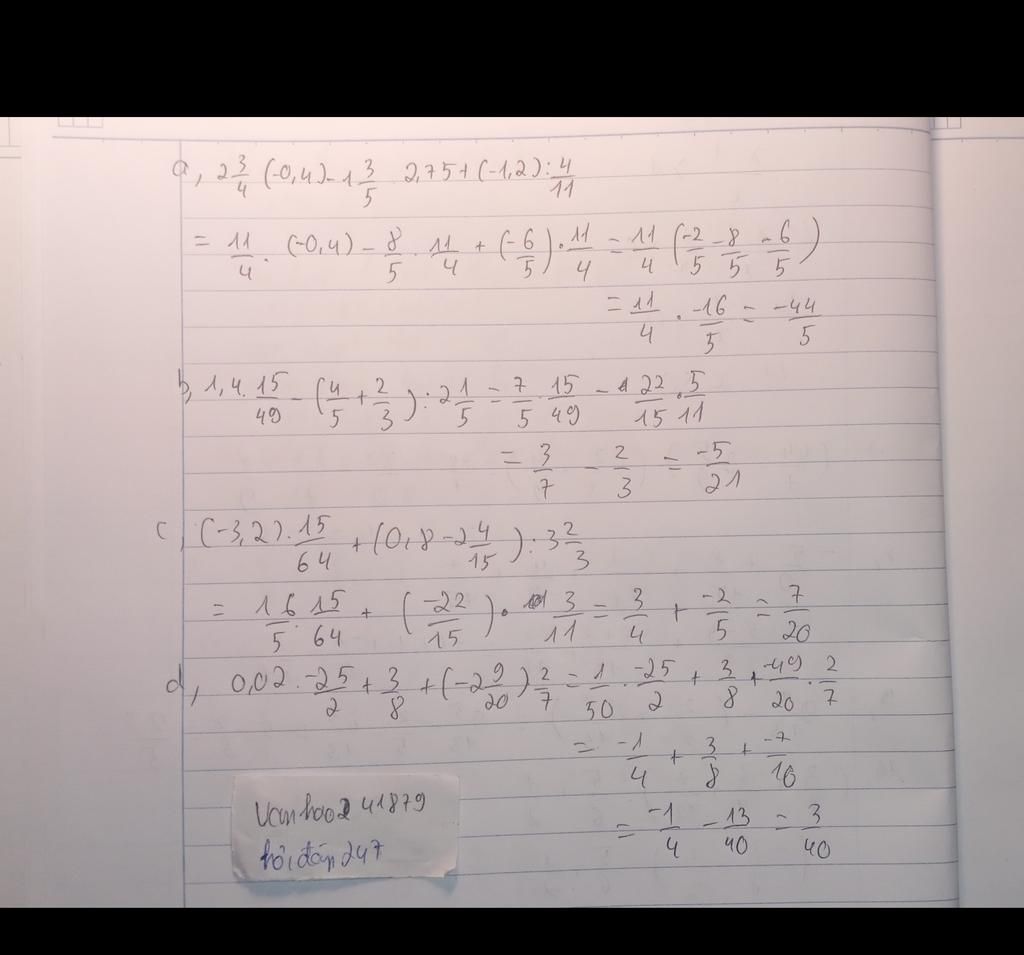 a, 2 3/4 (-0,4) - 1 3/5 . 2,75 + (-1,2) : 4/11
= 11/4 . (-0,4) - 8/5 . 11/4 + (-6/5) . 11/4 = 11/4 (-2/5 - 8/5 - 6/5)
= 11/4 . -16/5 = -44/5
b, 1,4 . 15/49 - (4/5 + 2/3) : 2 1/5 = 7/5 . 15/49 - 22/15 . 5/11
= 3/7 - 2/3 = -5/21
c, (-3,2) . 15/64 + (0,8 - 2 4/15) : 3 2/3
= 16/5 . 15/64 + (-22/15) . 3/11 = 3/4 + -2/5 = 7/20
d, 0,02 . -25/2 + 3/8 + (-2 9/20) 2/7 = 1/50 . -25/2 + 3/8 + -49/20 . 2/7
= -1/4 + 3/8 + -7/10
= -1/4 - 13/40 = 3/40
vanhao2 41879
hỏi đáp 247